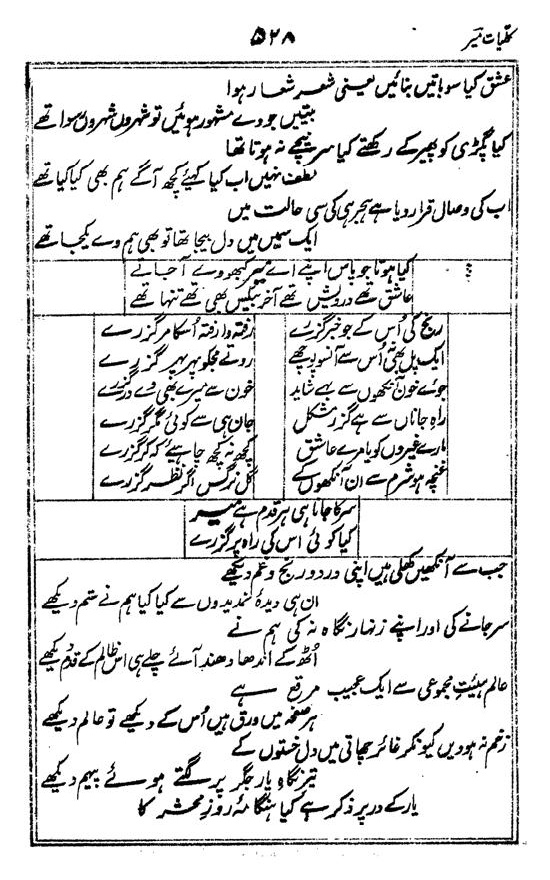 کلیات میر
۵۲۸
عشق کیا سو باتیں بنائیں یعنی شعر شعار ہوا
بیتیں جو وے مشہور ہوئیں تو شہروں شہروں رسوا تھے
کیا پگڑی کو پھیر کے رکھتے کیا سر نیچے نہ ہوتا تھا
لطف نہیں اب کیا کہئے کچھ آگے ہم بھی کیا کیا تھے
اب کی وصال قرار دیا ہے ہجر ہی کی سی حالت میں
ایک سمیں میں دل بیجا تھا تو بھی ہم وے یکجا تھے
کیا ہوتا جو پاس اپنے اے میر کبھو وے آجاتے
عاشق تھے درویش تھے آخر بیکس بھی تھے تنہا تھے
رنج کی اُس کے جو خبر گزرے
رفتہ وارفتہ اُسکا مر گزرے
ایک پل بھی نہ اُس سے آنسو پچھے
روتے مجکو پہر پہر گزرے
جوئے خون آنکھوں سے بہے شاید
خون سے میرے بھی وے درگزرے
راہ جاناں سے ہے گزر مشکل
جان ہی سے کوئی مگر گزرے
مارے غیروں کو یا مرے عاشق
کچھ نہ کچھ چاہیئے کہ کر گزرے
غنچہ ہو شرم سے ان آنکھوں کے
گل نرگس اگر نظر گزرے
سر کا جانا ہی ہر قدم ہے میر
کیا کوئی اس کی راہ پر گزرے
جب سے آنکھیں کھلی ہیں اپنی درد و رنج و غم دیکھے
ان ہی دیدۂ نمدیدوں سے کیا کیا ہم نے ستم دیکھے
سر جانے کی اور اپنے زنہار نگاہ نہ کی ہم نے
اُٹھ کے اندھا دھند آئے چلے ہی اس ظالم کے قدم دیکھے
عالم ہیئت مجموعی سے ایک عجیب مرقع ہے
ہر صفحہ میں ورق میں اُس کے دیکھے تو عالم دیکھے
زخم نہ ہوویں کیونکر غائر چھاتی میں دل خستوں کے
تیر نگاہ یار جگر پر لگتے ہوئے پیہم دیکھے
یار کے در پر ذکر ہے کیا ہنگامۂ روز محشر کا